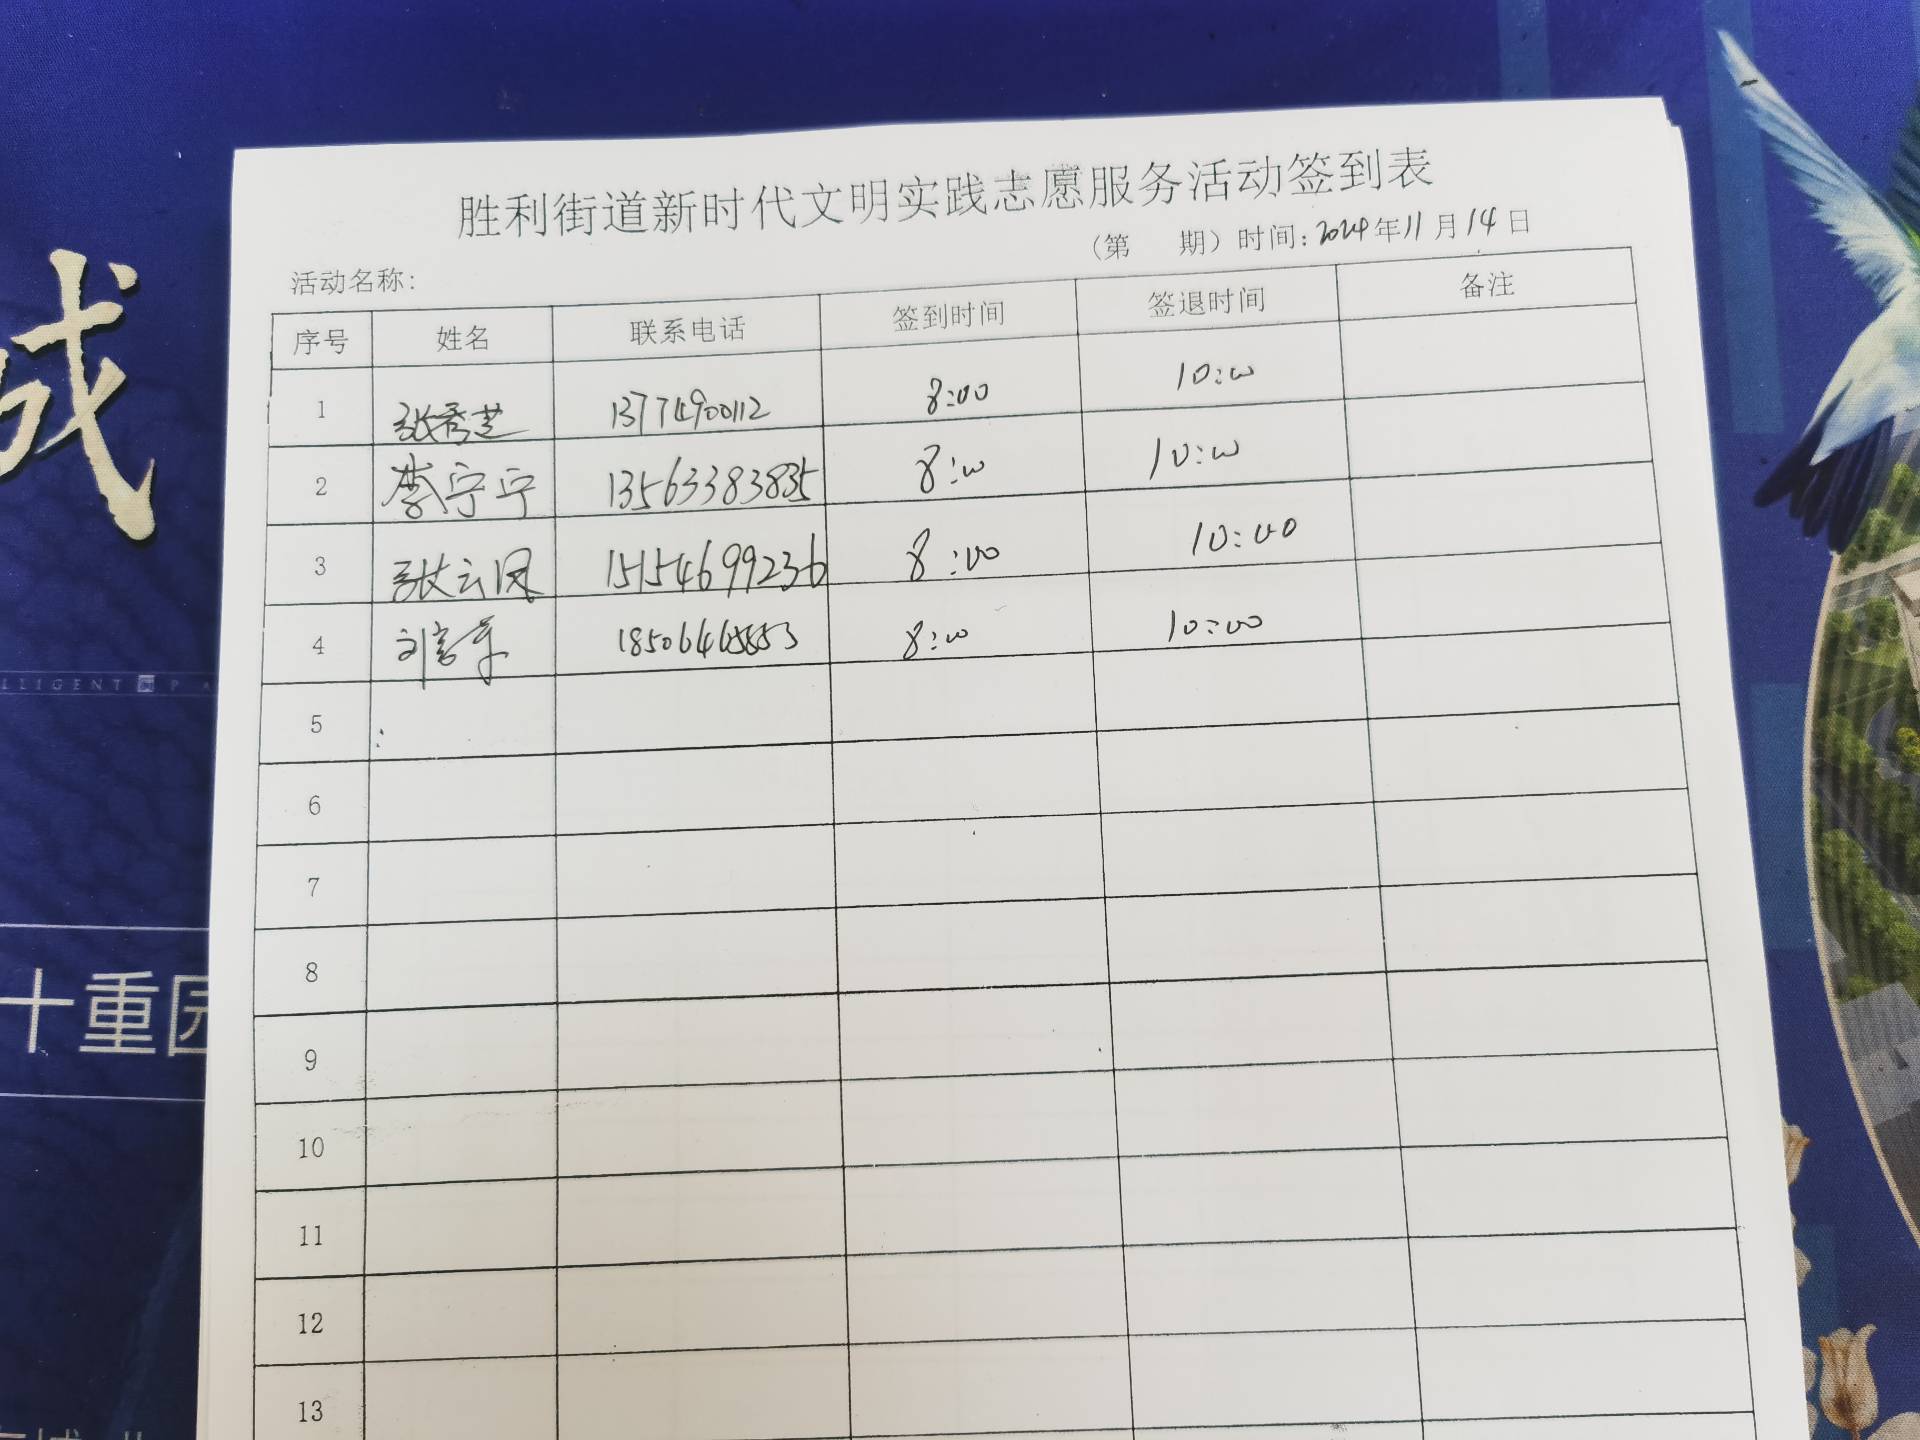 胜利街道新时代文明实践志愿服务活动签到表
(第 期) 时间: 2024年11月14日
活动名称:
序号 姓名 联系电话 签到时间 签退时间 备注
1 张秀芝 13774900112 8:00 10:00
2 李宁宁 13563383835 8:00 10:00
3 张云凤 15154699236 8:00 10:00
4 8:00 10:00
5
6
7
8
9
10
11
12
13
成
LLIGENT PA
十重园